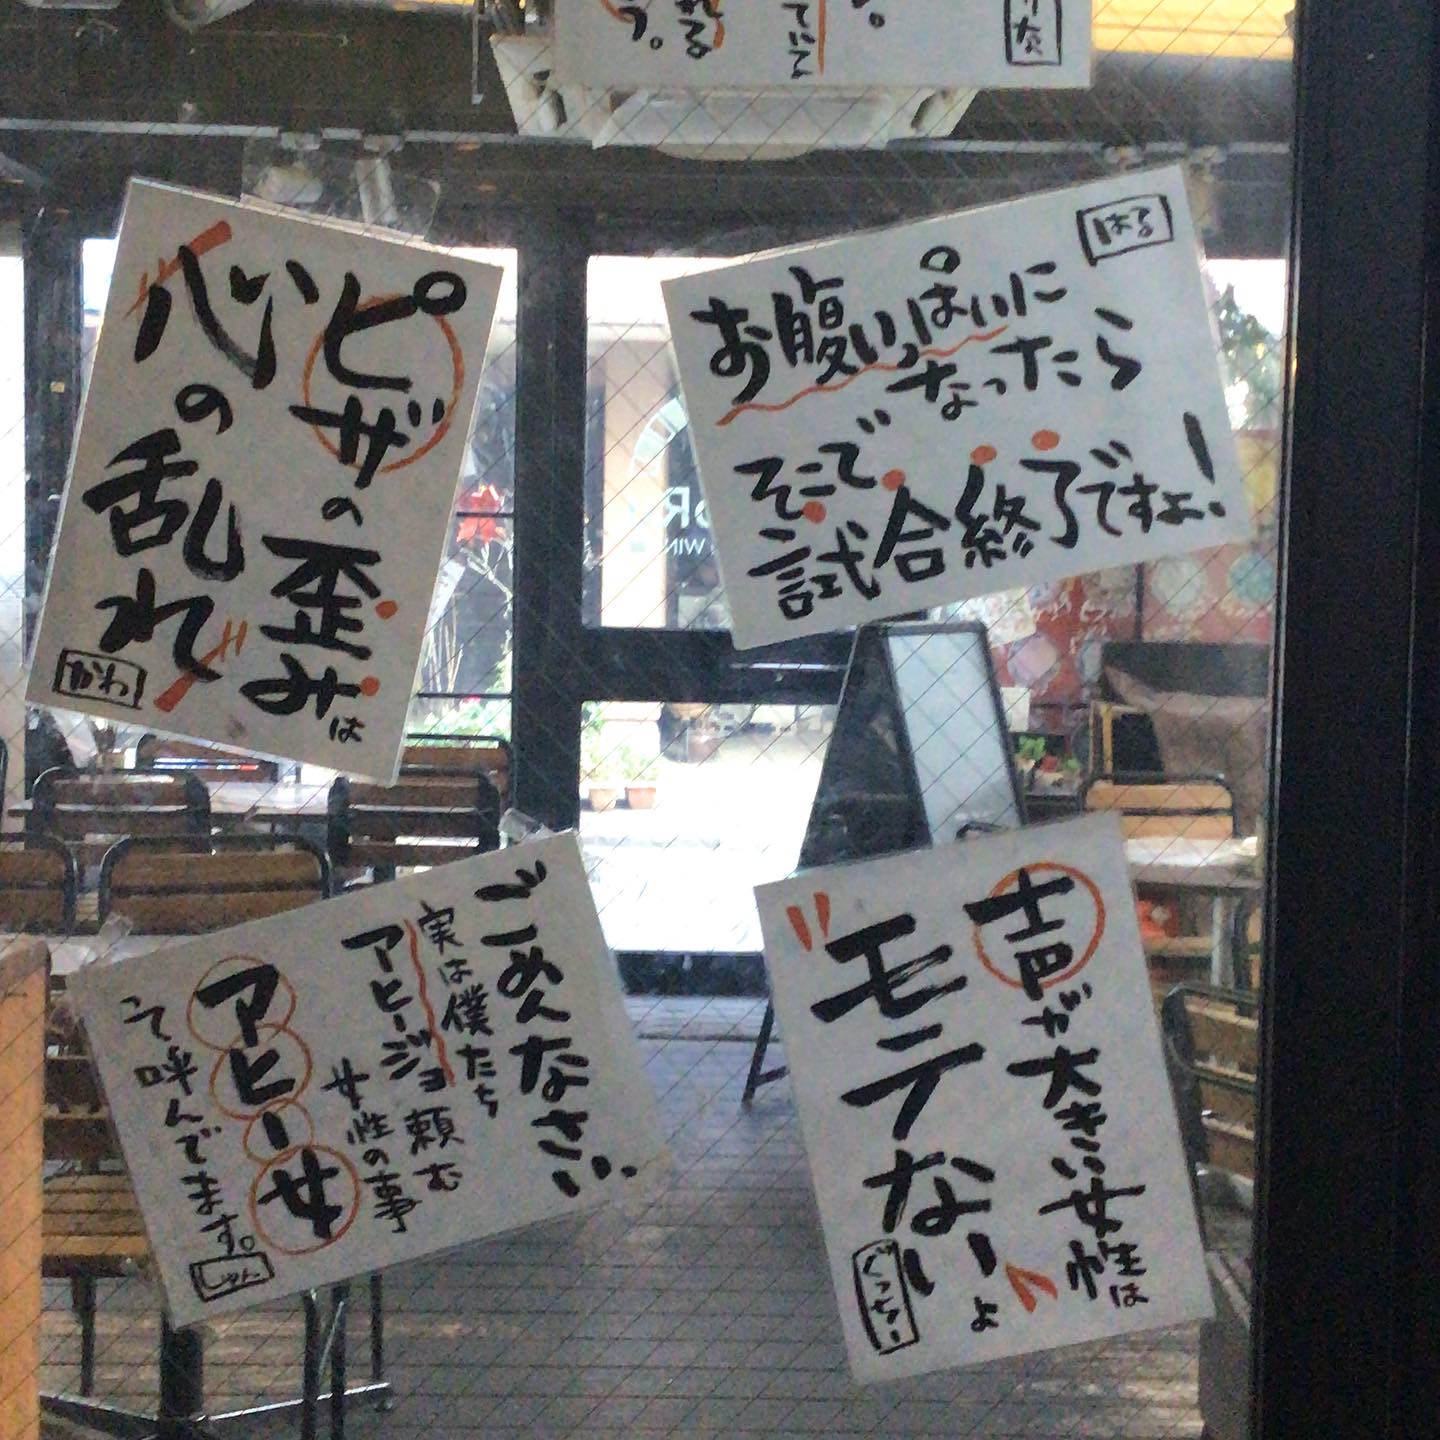 ピザの歪みは
心の乱れ
かわ
はる
お腹いっぱいに
なったら
そこで
試合終了ですよ!
ごめんなさい。
実は僕たち
アヒージョ頼む
女性の事
アヒー女
って呼んでます。
しゅん
声が大きい女性は
"モテない"よ
ぐっちー